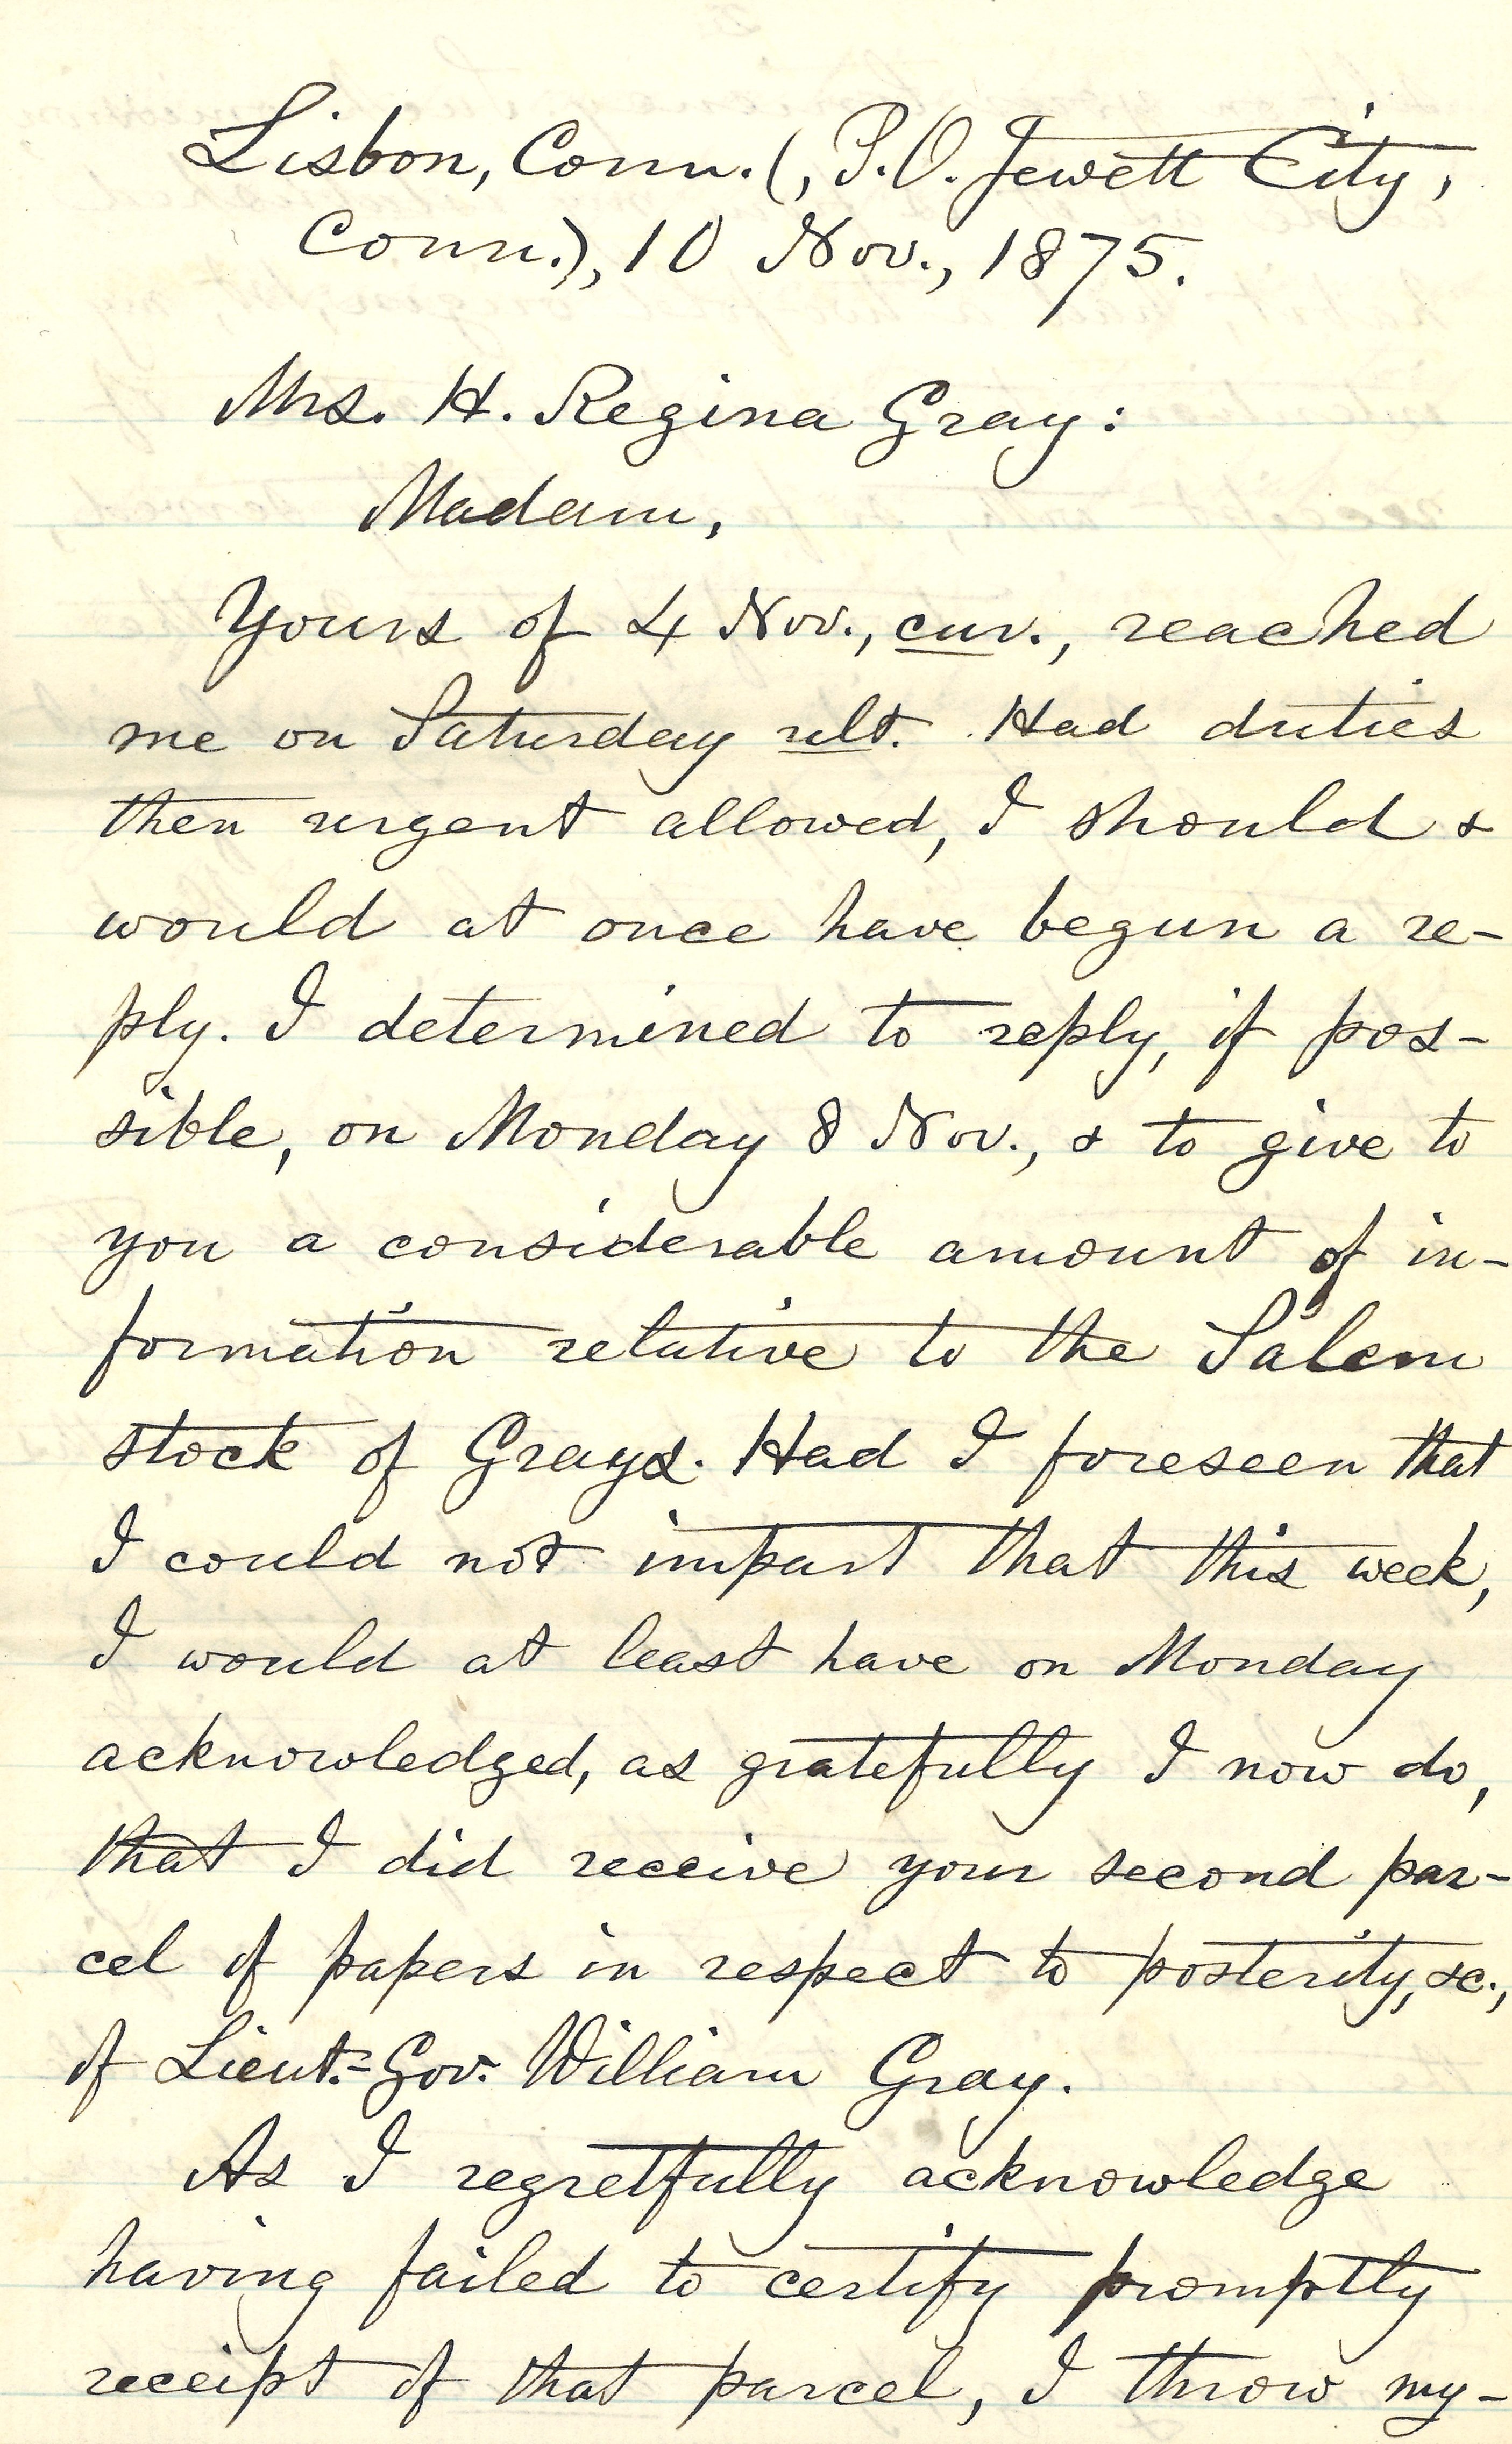 Lisbon, Conn. (, P.O. Jewett City,
Conn.), 10 Nov., 1875.
Mrs. H. Regina Gray:
Madam,
Yours of 4 Nov., cur., reached
me on Saturday ult. Had duties
then urgent allowed, I should &
would at once have begun a re-
ply. I determined to reply, if pos-
sible, on Monday 8 Nov., & to give to
you a considerable amount of in-
formation relative to the Salem
stock of Grays. Had I foreseen that
I could not impart that this week,
I would at least have on Monday
acknowledged, as gratefully I now do,
that I did receive your second par-
cel of papers in respect to posterity, &c.,
of Lieut.-Gov. William Gray.
As I regretfully acknowledge
having failed to certify promptly
receipt of that parcel, I throw my-